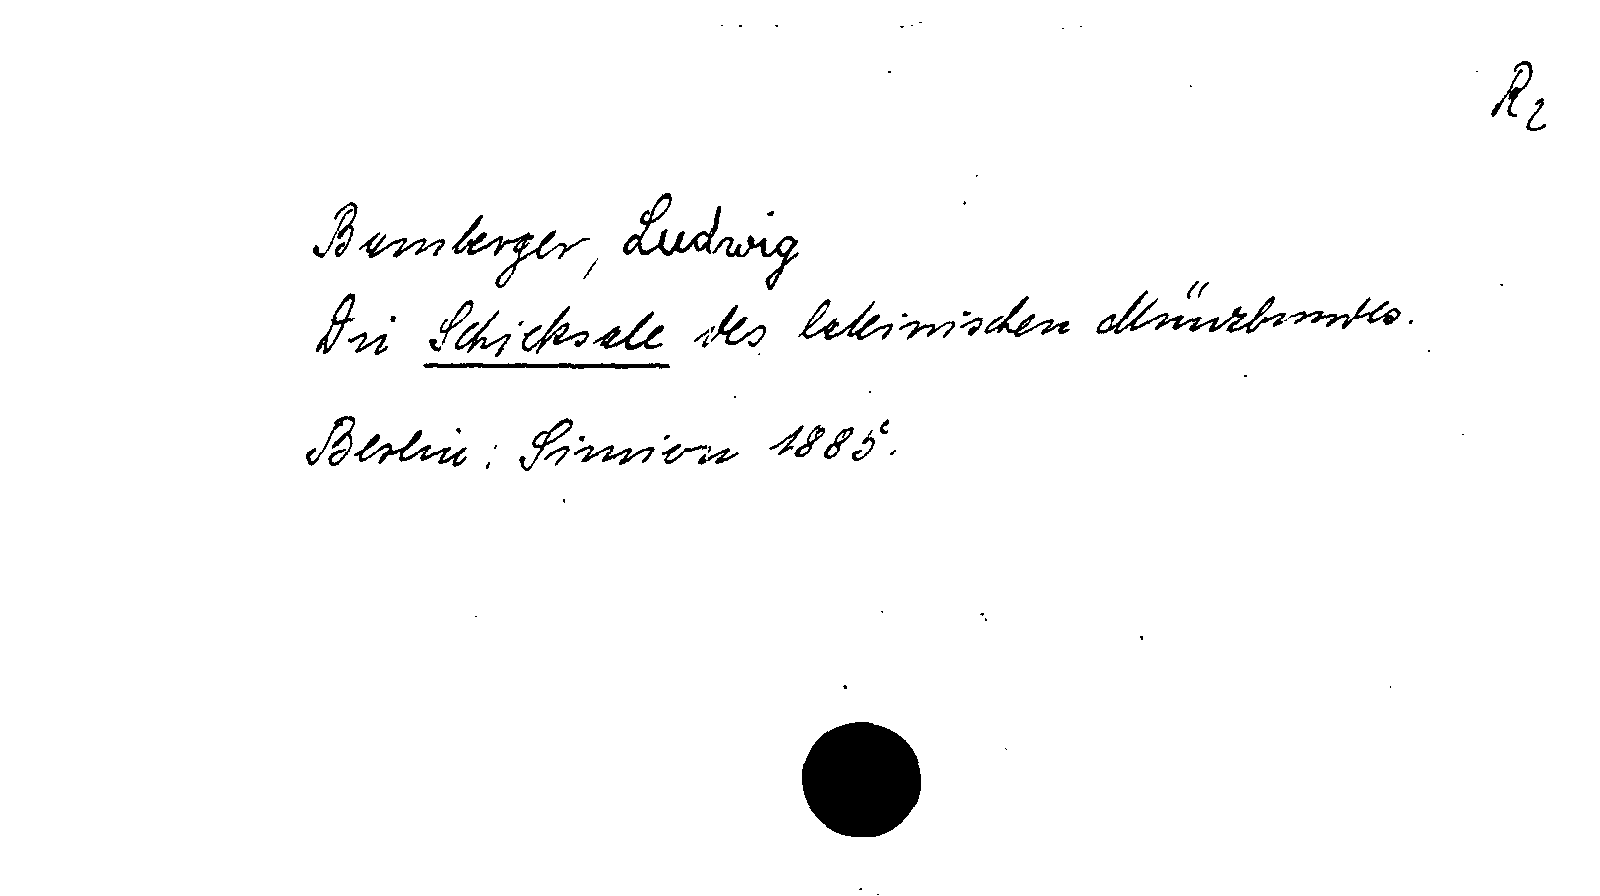 R2
Bamberger, Ludwig
Die Schicksale des lateinischen Münzbundes.
Berlin: Simion 1885.